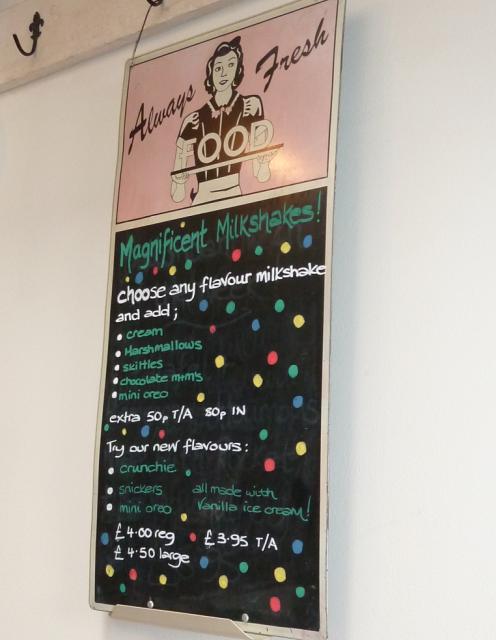 Always Fresh
FOOD
Magnificent Milkshakes!
choose any flavour milkshake
and add;
• cream
• Marshmallows
• skittles
• chocolate m+m's
• mini oreo
extra 50p T/A 80p IN
Try our new flavours:
• crunchie
• snickers all made with
• mini oreo Vanilla ice cream!
£4.00 reg £3.95 T/A
£4.50 large